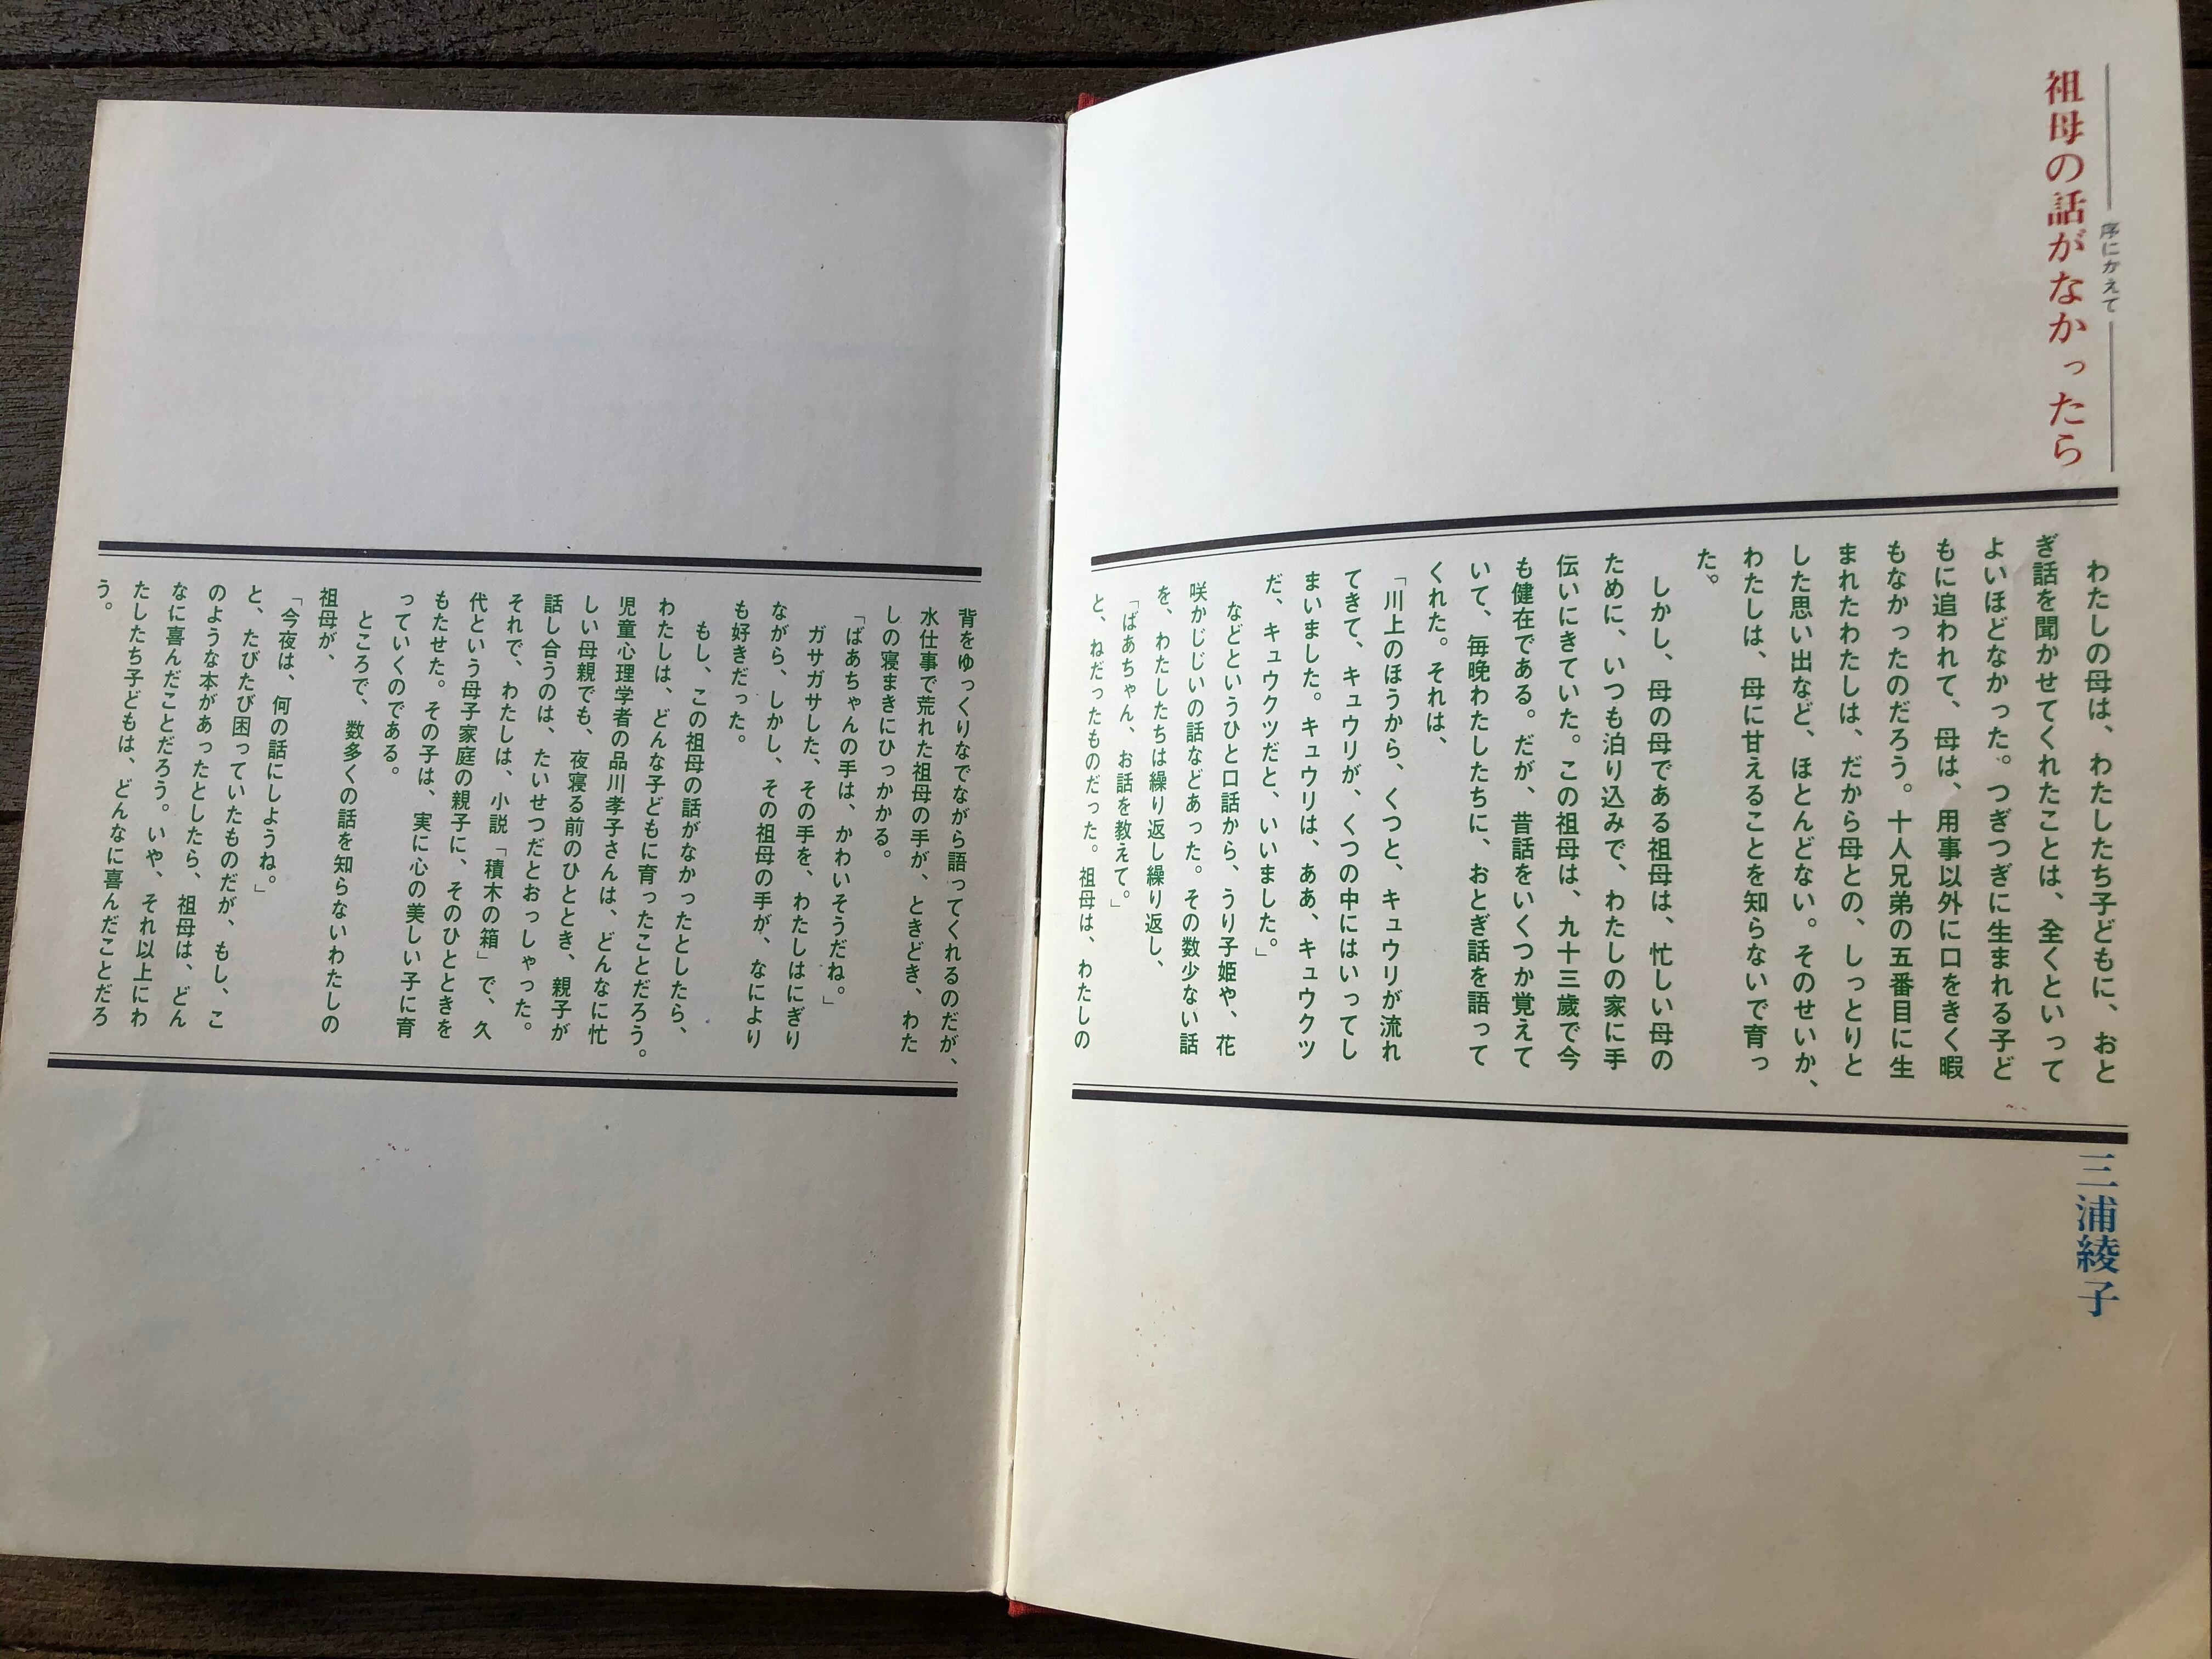 祖母の話がなかったら
序にかえて
三浦綾子
わたしの母は、わたしたち子どもに、おと
ぎ話を聞かせてくれたことは、全くといって
よいほどなかった。つぎつぎに生まれる子ど
もに追われて、母は、用事以外に口をきく暇
もなかったのだろう。十人兄弟の五番目に生
まれたわたしは、だから母との、しっとりと
した思い出など、ほとんどない。そのせいか、
わたしは、母に甘えることを知らないで育っ
た。
しかし、母の母である祖母は、忙しい母の
ために、いつも泊り込みで、わたしの家に手
伝いにきていた。この祖母は、九十三歳で今
も健在である。だが、昔話をいくつか覚えて
いて、毎晩わたしたちに、おとぎ話を語って
くれた。それは、
「川上のほうから、くつと、キュウリが流れ
てきて、キュウリが、くつの中にはいってし
まいました。キュウリは、ああ、キュウクツ
だ、キュウクツだと、いいました。」
などというひと口話から、うり子姫や、花
咲かじじいの話などあった。その数少ない話
を、わたしたちは繰り返し繰り返し、
「ばあちゃん、お話を教えて。」
と、ねだったものだった。祖母は、わたしの
背をゆっくりなでながら語ってくれるのだが、
水仕事で荒れた祖母の手が、ときどき、わた
しの寝まきにひっかかる。
「ばあちゃんの手は、かわいそうだね。」
ガサガサした、その手を、わたしはにぎり
ながら、しかし、その祖母の手が、なにより
も好きだった。
もし、この祖母の話がなかったとしたら、
わたしは、どんな子どもに育ったことだろう。
児童心理学者の品川孝子さんは、どんなに忙
しい母親でも、夜寝る前のひととき、親子が
話し合うのは、たいせつだとおっしゃった。
それで、わたしは、小説「積木の箱」で、久
代という母子家庭の親子に、そのひとときを
もたせた。その子は、実に心の美しい子に育
っていくのである。
ところで、数多くの話を知らないわたしの
祖母が、
「今夜は、何の話にしようね。」
と、たびたび困っていたものだが、もし、こ
のような本があったとしたら、祖母は、どん
なに喜んだことだろう。いや、それ以上にわ
たしたち子どもは、どんなに喜んだことだろ
う。